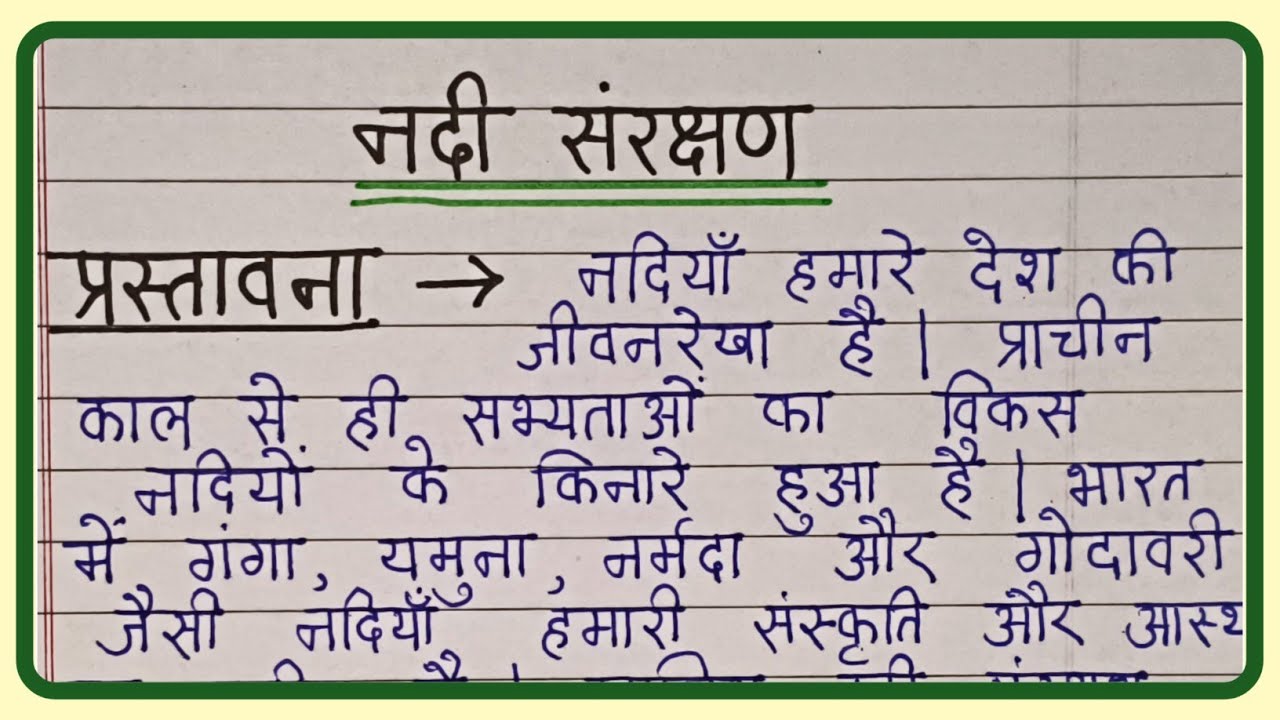 नदी संरक्षण
प्रस्तावना → नदियाँ हमारे देश की
जीवनरेखा है। प्राचीन
काल से ही सभ्यताओं का विकस
नदियों के किनारे हुआ है। भारत
में गंगा, यमुना, नर्मदा और गोदावरी
जैसी नदियाँ हमारी संस्कृति और